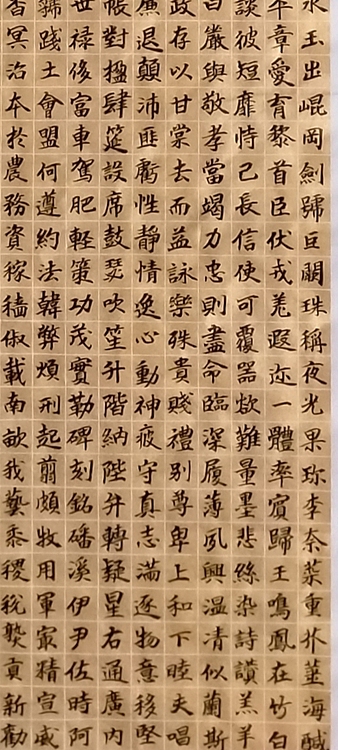 水玉出崐岡劍號巨闕珠稱夜光果珍李柰菜重芥薑海鹹
平章愛育黎首臣伏戎羌遐迩一體率賓歸王鳴鳳在竹白
談彼短靡恃己長信使可覆器欲難量墨悲絲染詩讚羔羊
曰嚴與敬孝當竭力忠則盡命臨深履薄夙興温凊似蘭斯
政存以甘棠去而益詠樂殊貴賤禮別尊卑上和下睦夫唱
廉退顛沛匪虧性靜情逸心動神疲守真志滿逐物意移堅
帳對楹肆筵設席鼓瑟吹笙升階納陛弁轉疑星右通廣内
世禄侈富車駕肥軽策功茂實勒碑刻銘磻溪伊尹佐時阿
虢踐土會盟何遵約法韓弊煩刑起翦頗牧用軍最精宣威
杳冥治本於農務資稼穡俶載南畝我藝黍稷稅熟貢新勸